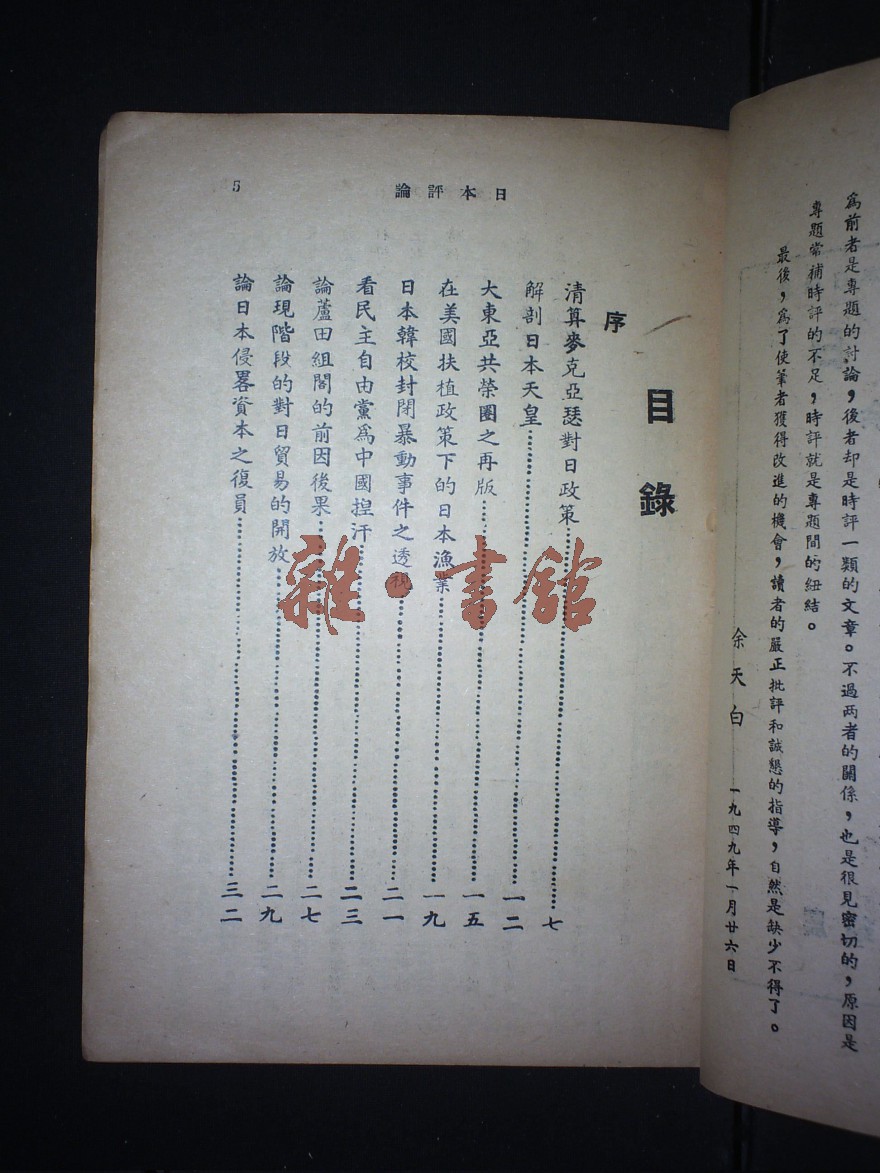 為前者是專題的討論，後者却是時評一類的文章。不過两者的關係，也是很見密切的，原因是
專題常補時評的不足，時評就是專題間的紐結。
最後，為了使筆者獲得改進的機會，讀者的嚴正批評和誠懇的指導，自然是缺少不得了。
余天白 一九四九年一月廿六日
日本評論
5
目錄
序
清算麥克亞瑟對日政策……七
解剖日本天皇……一二
大東亞共榮圈之再版……一五
在美國扶植政策下的日本漁業……一九
日本韓校封閉暴動事件之透視……二一
看民主自由黨為中國揑汗……二三
論蘆田組閣的前因後果……二七
論現階段的對日貿易的開放……二九
論日本侵畧資本之復員……三二
雜·書館